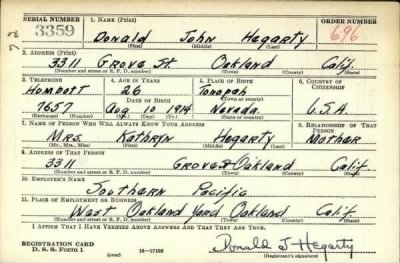 SERIAL NUMBER 1. NAME (Print) ORDER NUMBER
3359 Donald John Hegarty 696
(First) (Middle) (Last)
2. ADDRESS (Print)
3311 Grove St Oakland Calif.
(Number and street or R. F. D. number) (Town) (County) (State)
3. TELEPHONE 4. AGE IN YEARS 5. PLACE OF BIRTH 6. COUNTRY OF CITIZENSHIP
Humbolt 26 Tonapah
DATE OF BIRTH (Town or county)
7657 Aug. 10 1914 Nevada. U.S.A.
(Exchange) (Number) (Mo.) (Day) (Yr.) (State or country)
7. NAME OF PERSON WHO WILL ALWAYS KNOW YOUR ADDRESS 8. RELATIONSHIP OF THAT PERSON
Mrs. Kathryn Hegarty Mother
(Mr., Mrs., Miss) (First) (Middle) (Last)
9. ADDRESS OF THAT PERSON
3311 Grove St Oakland Calif.
(Number and street or R. F. D. number) (Town) (County) (State)
10. EMPLOYER'S NAME
Southern Pacific
11. PLACE OF EMPLOYMENT OR BUSINESS
West Oakland Yard Oakland Calif
(Number and street or R. F. D. number) (Town) (County) (State)
I AFFIRM THAT I HAVE VERIFIED ABOVE ANSWERS AND THAT THEY ARE TRUE.
REGISTRATION CARD
D. S. S. FORM 1 (over) 16—17105 Donald J Hegarty
(Registrant's signature)